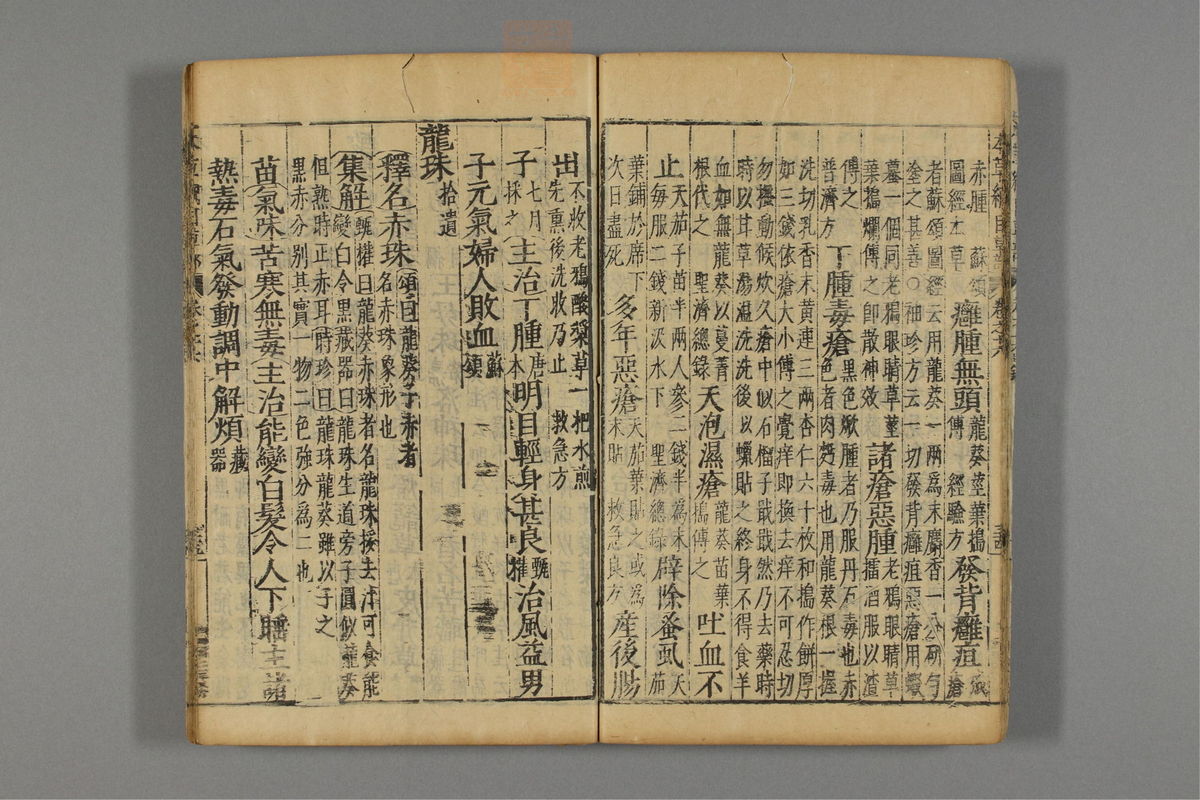 赤腫　蘇頌圖經本草　癰腫無頭　龍葵莖葉搗傅　經驗方　發背癰疽　成瘡
者蘇頌圖經云用龍葵一兩為末麝香一分研勻塗之甚善○袖珍方云一切發背癰疽惡瘡用蝦
蟇一個同老鴉眼睛草莖葉搗爛傅之即散神效　諸瘡惡腫　老鴉眼睛草擂酒服以渣
傅之普濟方　丁腫毒瘡　黑色焮腫者乃服丹石毒也赤色者肉麪毒也用龍葵根一握
洗切乳香末黃連三兩杏仁六十枚和搗作餅厚如三錢依瘡大小傅之覺痒即換去痒不可忍切
勿搔動候炊久瘡中似石榴子戢戢然乃去藥時時以甘草湯溫洗洗後以蠟貼之終身不得食羊
血如無龍葵以蔓菁根代之　聖濟總錄　天泡濕瘡　龍葵苗葉搗傅之　吐血不
止　天茄子苗半兩人參二錢半為末每服二錢新汲水下　聖濟總錄　辟除蚤虱　天茄
葉鋪於席下次日盡死　多年惡瘡　天茄葉貼之或為末貼　救急良方　產後腸
出　不收老鴉酸漿草一把水煎先熏後洗收乃止　救急方
子　七月採之　主治丁腫　唐本　明目輕身甚良　甄權　治風益男
子元氣婦人敗血　蘇頌
龍珠　拾遺
釋名赤珠　頌曰龍葵子赤者名赤珠象形也
集解　甄權曰龍葵赤珠者名龍珠挼去汁可食能變白令黑藏器曰龍珠生道旁子圓似龍葵
但熟時正赤耳時珍曰龍珠龍葵雖以子之黑赤分別其實一物二色強分為二也
苗氣味苦寒無毒主治能變白髮令人不睡主諸
熱毒石氣發動調中解煩　藏器